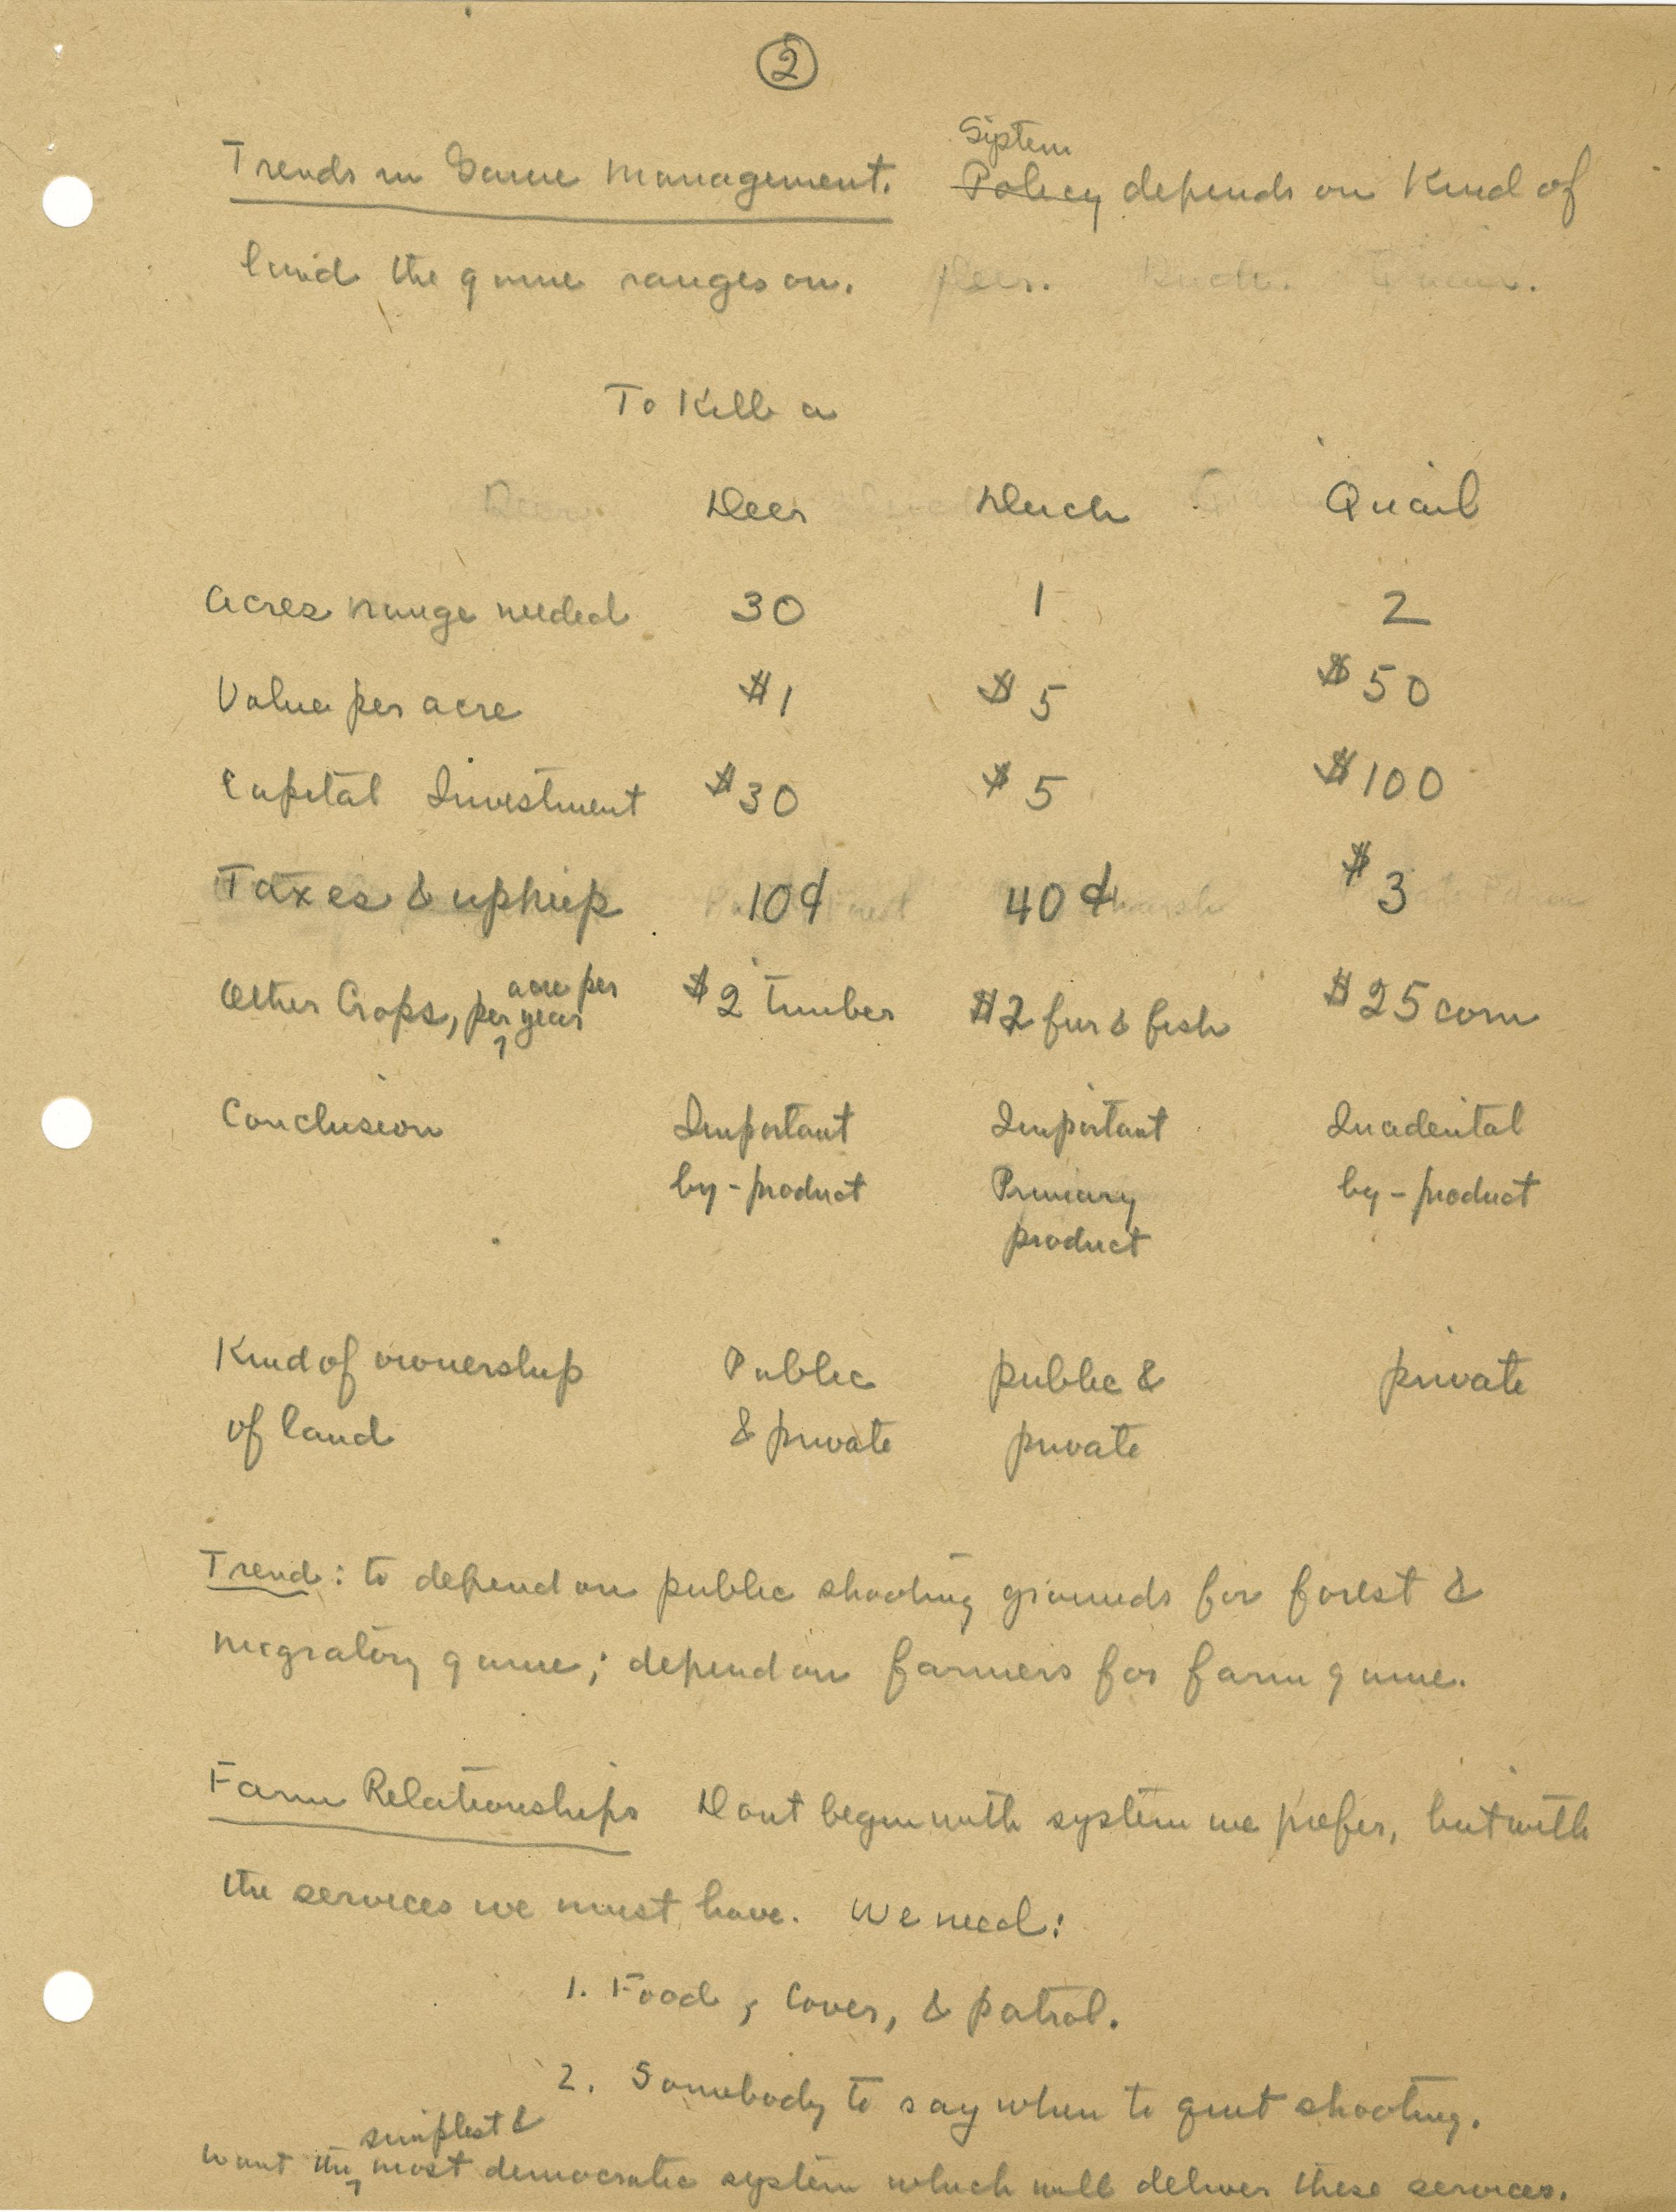 2
System
Trends in Game Management. Policy depends on kind of
land the game ranges on. Deer. Duck. Quail.
To Kill a
Deer Duck Quail
Acres range needed 30 1 2
Value per acre $1 $5 $50
Capital Investment $30 $5 $100
Taxes & upkeep 10¢ 40¢ $3
acre per
Other Crops, per year $2 timber $2 fur & fish $25 corn
Conclusion Important Important Incidental
by-product Primary by-product
product
Kind of ownership Public public & private
of land & private private
Trend: to depend on public shooting grounds for forest &
migratory game; depend on farmers for farm game.
Farm Relationships Dont begin with system we prefer, but with
the services we must have. We need:
1. Food, Cover, & patrol.
2. Somebody to say when to quit shooting.
simplest &
Want the most democratic system which will deliver these services.